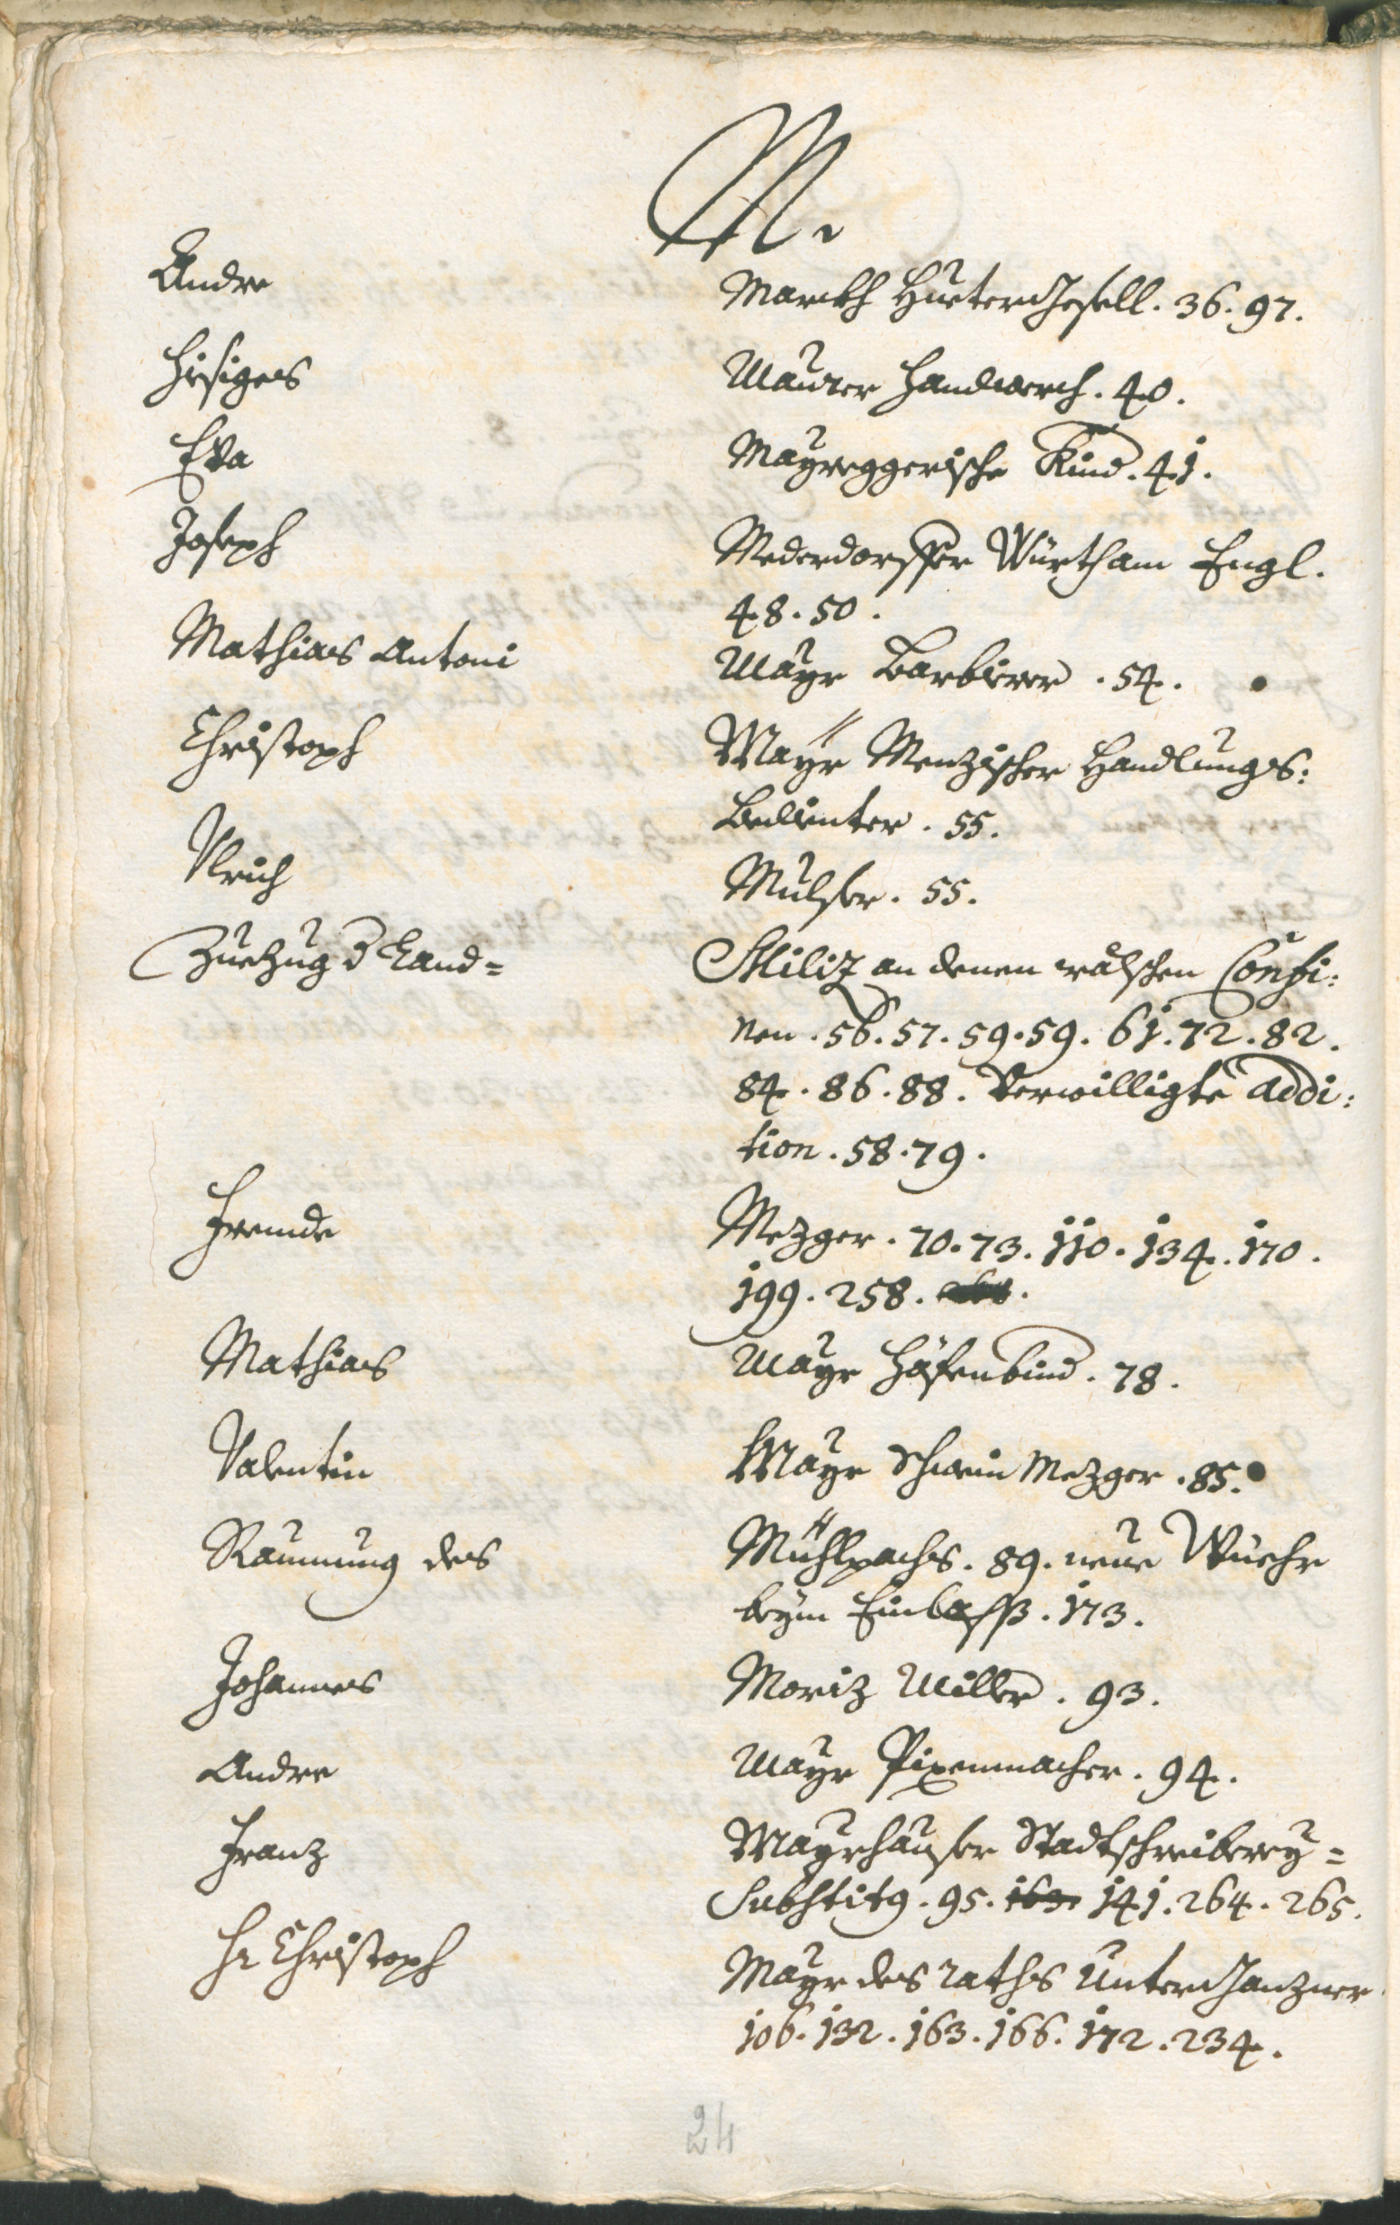 M.
Andre Marckh Huetergesell. 36. 97.
Hisiges Maurer Handwerch. 40.
Eva Mayreggerische Kind. 41.
Joseph Mederdorffer Würth am Engl.
48. 50.
Mathias Antoni Mayr Barbierer. 54.
Christoph Maÿr Menzischer Handlungs:
bedienter. 55.
Ulrich Mulser. 55.
Zuezug d Land= Miliz an denen wälschen Confi:
nen. 56. 57. 59. 59. 61. 72. 82.
84. 86. 88. Verwilligte addi:
tion. 58. 79.
Fremde Mezger. 70. 73. 110. 134. 170.
199. 258.
Mathias Mayr Häfenbind. 78.
Valentin Mayr Schwein Mezger. 85.
Raumung des Mühlpachs. 89. neue Wuehr
beym Einlasß. 173.
Johannes Moriz Miller. 93.
Andre Mayr Pixenmacher. 94.
Franz Mayrhauser Stadtschreiberey=
Substitg. 95. 163. 141. 264. 265.
Hr Christoph Mayr des raths Unterganzner
106. 132. 163. 166. 172. 234.
24